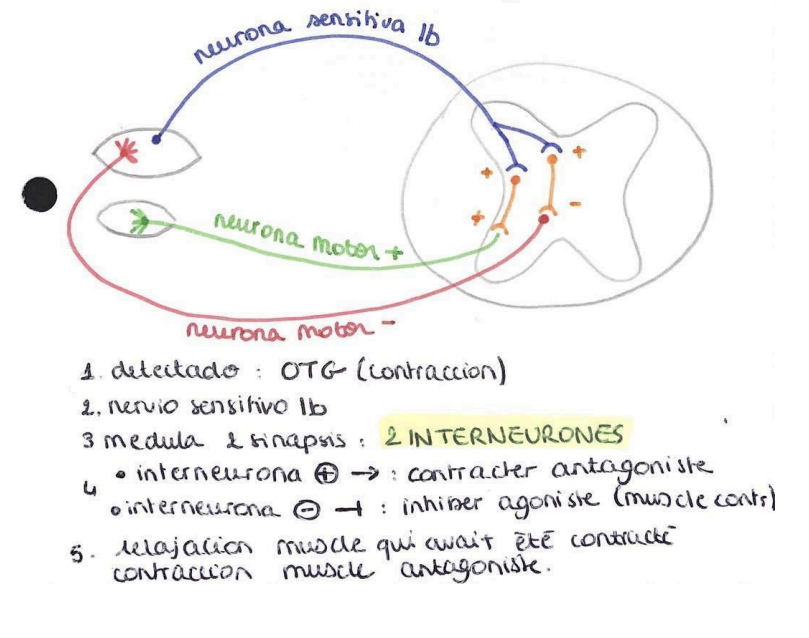 neurona sensitiva Ib
+
+
+
-
neurona motor +
neurona motor -
1. detectado : OTG (contraccion)
2. nervio sensitivo Ib
3 medula 2 sinapsis : 2 INTERNEURONES
4 • interneurona ⊕ → : contracter antagoniste
• interneurona ⊖ ⊣ : inhiber agoniste (muscle contr)
5. relajacion muscle qui avait été contracté
contraccion muscle antagoniste.